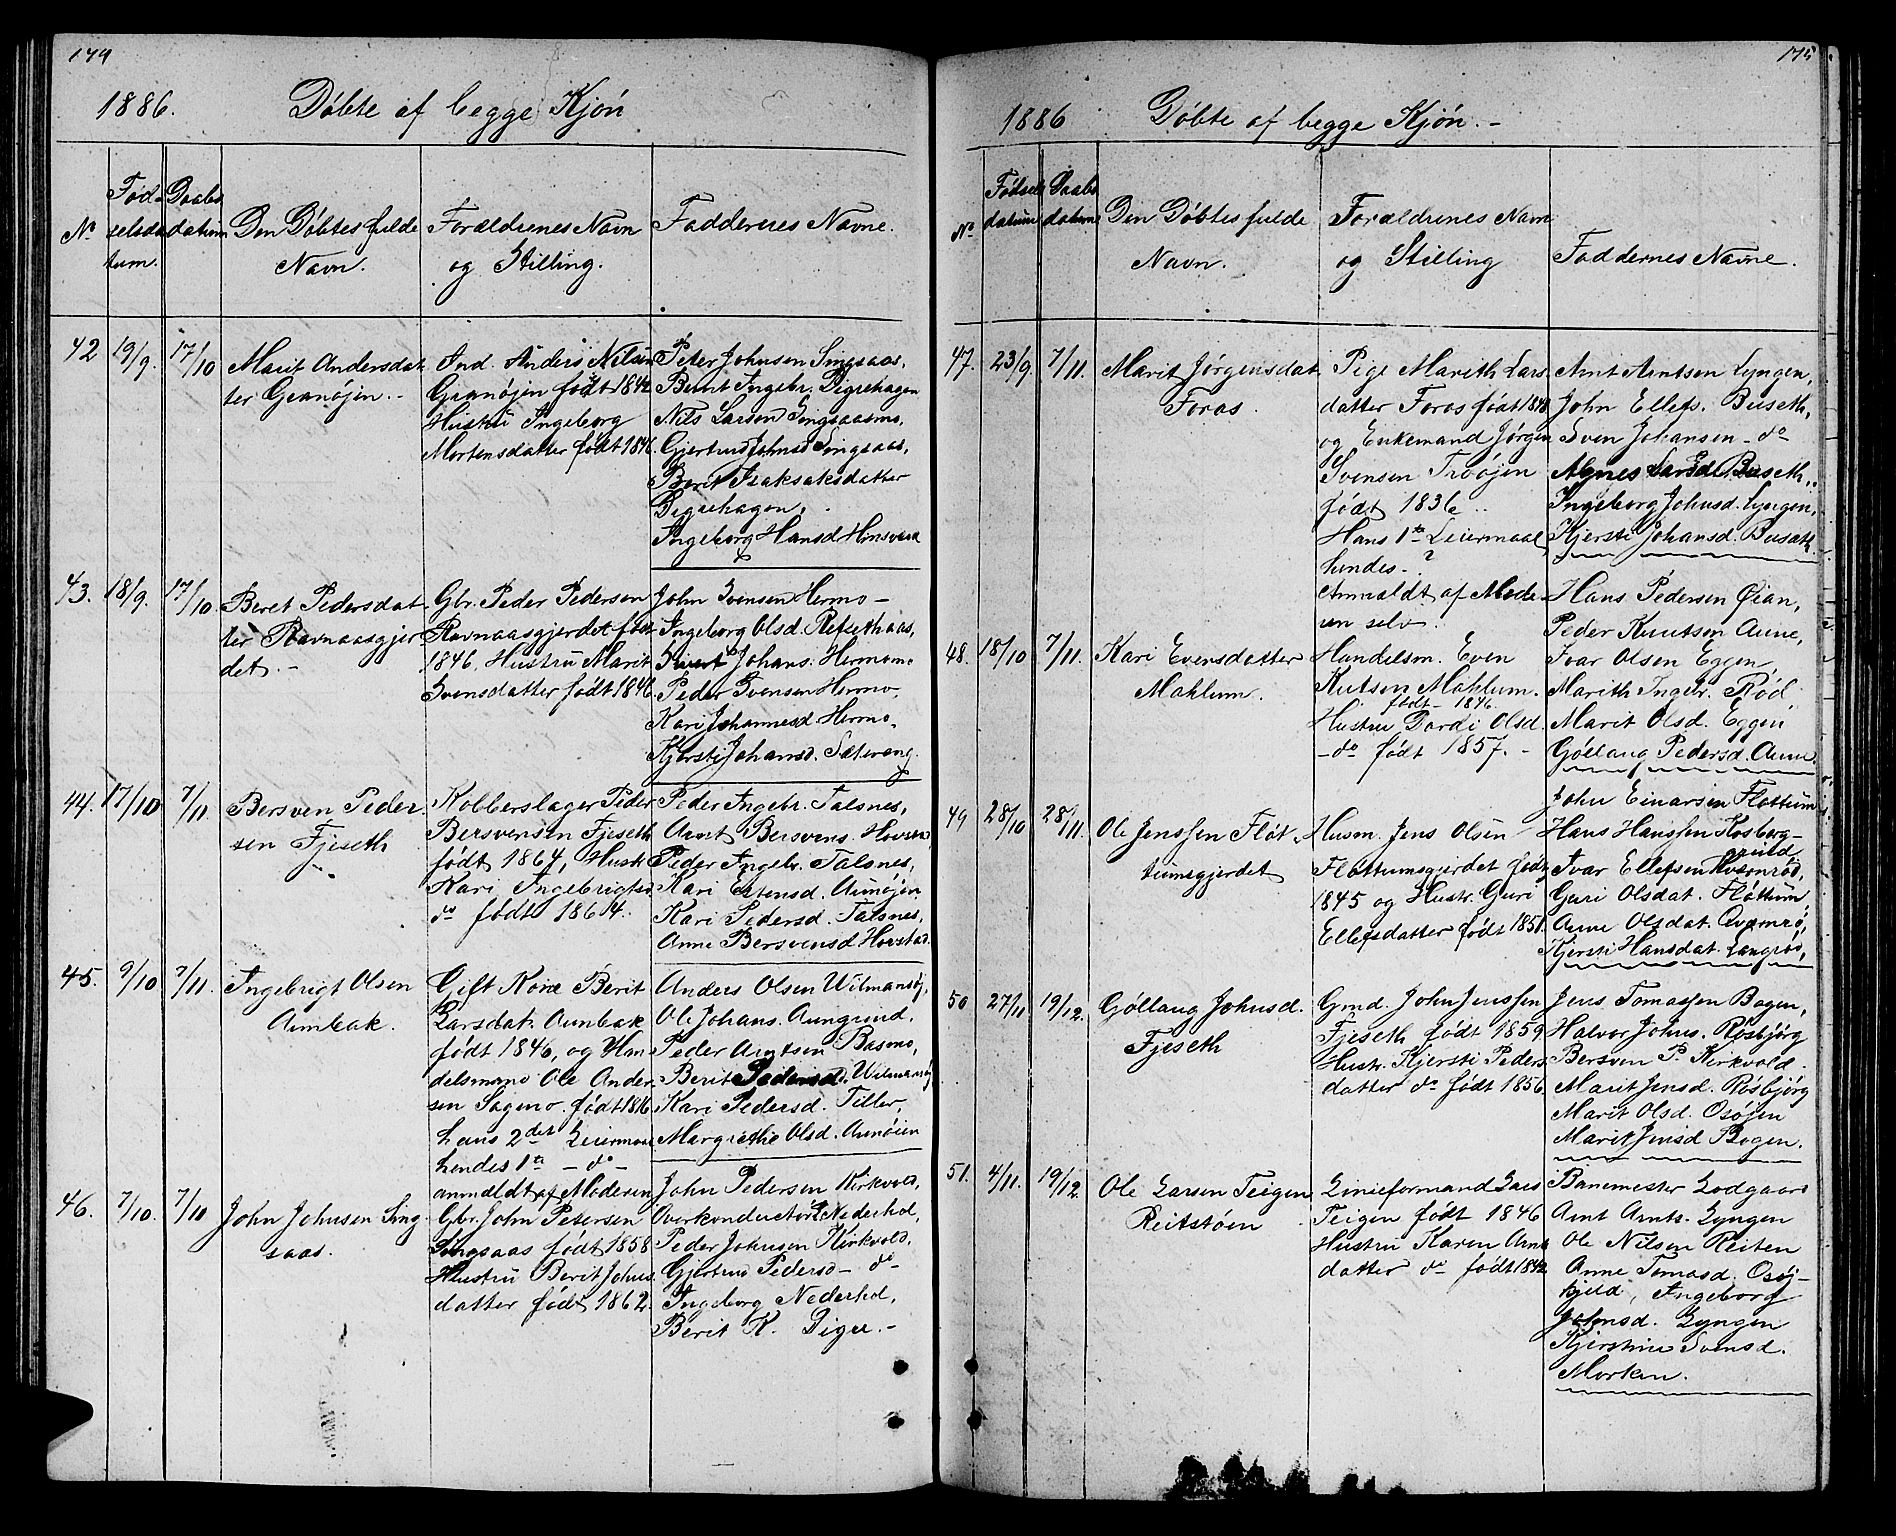 174
1886. Döbte af begge Kjön
No
Fød-
selsda
tum.
Daabs
datum
Den Döbtes fulde
Navn.
Forældrenes Navn
og Stilling.
Faddernes Navne.
42 19/9. 17/10
Marit Andersdat
ter Granøjen. -
Ind. Anders Nilsen
Granøjen født 1842
Hustru Ingeborg
Mortensdatter født 1846.
Peter Johnsen Singsaas,
Bernt Ingebr. Digrehagen
Nils Larsen Singsaasmo,
Gjertrud Johnsd Singsaas,
Berit Isaksaksdatter
Digrehagen,
Ingeborg Hansd
43. 18/9. 17/10
Beret Pedersdat-
ter Ravnaasgjer
det. -
Gbr. Peder Pedersen
Ravnaasgjerdet født
1846, Hustru Marit
Svensdatter født 1846.
John Svensen Hermo -
Ingeborg Olsd.
Sivert Johans. Hermomo
Peder Svensen Hermo-
Kari Johannesd Hermo-
Kjersti Johansd. Sæterang.
44. 17/10 7/11.
Bersven Peder
sen Fjeseth
Kobberslager Peder
Bersvensen Fjeseth
født 1864, Hustr
Kari Ingebrigtsd.
do født 1864.
Peder Ingebr. Talsnes,
Arnt Bersvens.
Peder Ingebr. Talsnes,
Kari Estensd. Aunøjen.
Kari Pedersd. Talsnes,
Anne Bersvensd Hovstad.
45. 9/10 7/11.
Ingebrigt Olsen
Aunbak.
Gift Kone Berit
Larsdat. Aunbak
født 1846, og Han
delsmand Ole Ander
sen Sagmo. født 1816
hans 2det Leiermaal
hendes 1te - do -
anmeldt af Moderen
Anders Olsen Wilmansøj,
Ole Johans. Aungrind.
Peder Arntsen Basmo,
Berit Pedersd. Wilmansøj
Kari Pedersd. Tiller,
Margrethe Olsd. Aunøien
46. 7/10. 7/10
John Johnsen Sing
saas.
Gbr. John Petersen
Singsaas født 1858
Hustru Berit Johns
datter født 1862.
John Pedersen Kirkvold,
Overkonductør Nederhol,
Peder Johnsen Kirkvold,
Gjertrud Pedersd - do -
Ingeborg Nederhol,
Berit K. Digre. -
175
1886 Döbte af begge Kjön. -
No
Fødsels
datum
Daabs
datum
Den Döbtes fulde
Navn.
Forældrenes Navn
og Stilling
Faddernes Navne.
47. 23/9. 7/11.
Marit Jørgensdat.
Foros.
Pige Marith Lars
datter Foros født 1848
og Enkemand Jørgen
Svensen Troøjen
født 1836
Hans 1te Leiermaal
hendes - ?
Anmeldt af Mode-
ren selv.
Arnt Arntsen Lyngen,
John Ellefs. Buseth,
Sven Johansen - do
Agnes Larsd. Buseth,
Ingeborg Johnsd. Lyngen,
Kjersti Johansd. Buseth.
48. 18/10 7/11.
Kari Evensdatter
Mohlum.
Handelsm. Even
Knutsen Mohlum.
født - 1846.
Hustru Dordi Olsd.
- do født 1857. -
Hans Pedersen Øian,
Peder Knutsen Aune,
Ivar Olsen Eggen
Marith Ingebr. Rød,
Marit Olsd. Eggen
Göllaug Pedersd. Aune.
49 28/10 28/11.
Ole Jenssen Fløt-
tumsgjerdet
Husm. Jens Olsen
Fløttumsgjerdet født
1845 og Hustr. Guri
Ellefsdatter født 1851.
John Einarsen Fløttum
Hans Hanssen Kosberg-
grind,
Ivar Ellefsen Kværnrød,
Guri Olsdat. Fløttum,
Anne Olsdat. Qværnrø,
Kjersti Hansdat. Langrøe,
50 27/11 19/12.
Göllaug Johnsd.
Fjeseth
Gmd. John Jenssen
Fjeseth født 1859
Hustr. Kjersti Peders
datter do født 1856.
Jens Tomassen Bogen,
Halvor Johns. Røsbjörg
Bersven P. Kirkvold.
Marit Jensd. Røsbjörg
Marit Olsd. Osøjen
Marit Jensd Bogen.
51. 4/11. 19/12.
Ole Larsen Teigen
Reitstøen
Linieformand Lars
Teigen født 1846
Hustru Karen Arnt
datter do født 1842
Banemester Lodgaard
Arnt Arnts. Lyngen
Ole Nilsen Reiten
Anne Tomasd. Osøj-
kjeld, Ingeborg
Johnsd. Lyngen
Kjerstine Svensd.
Morken.